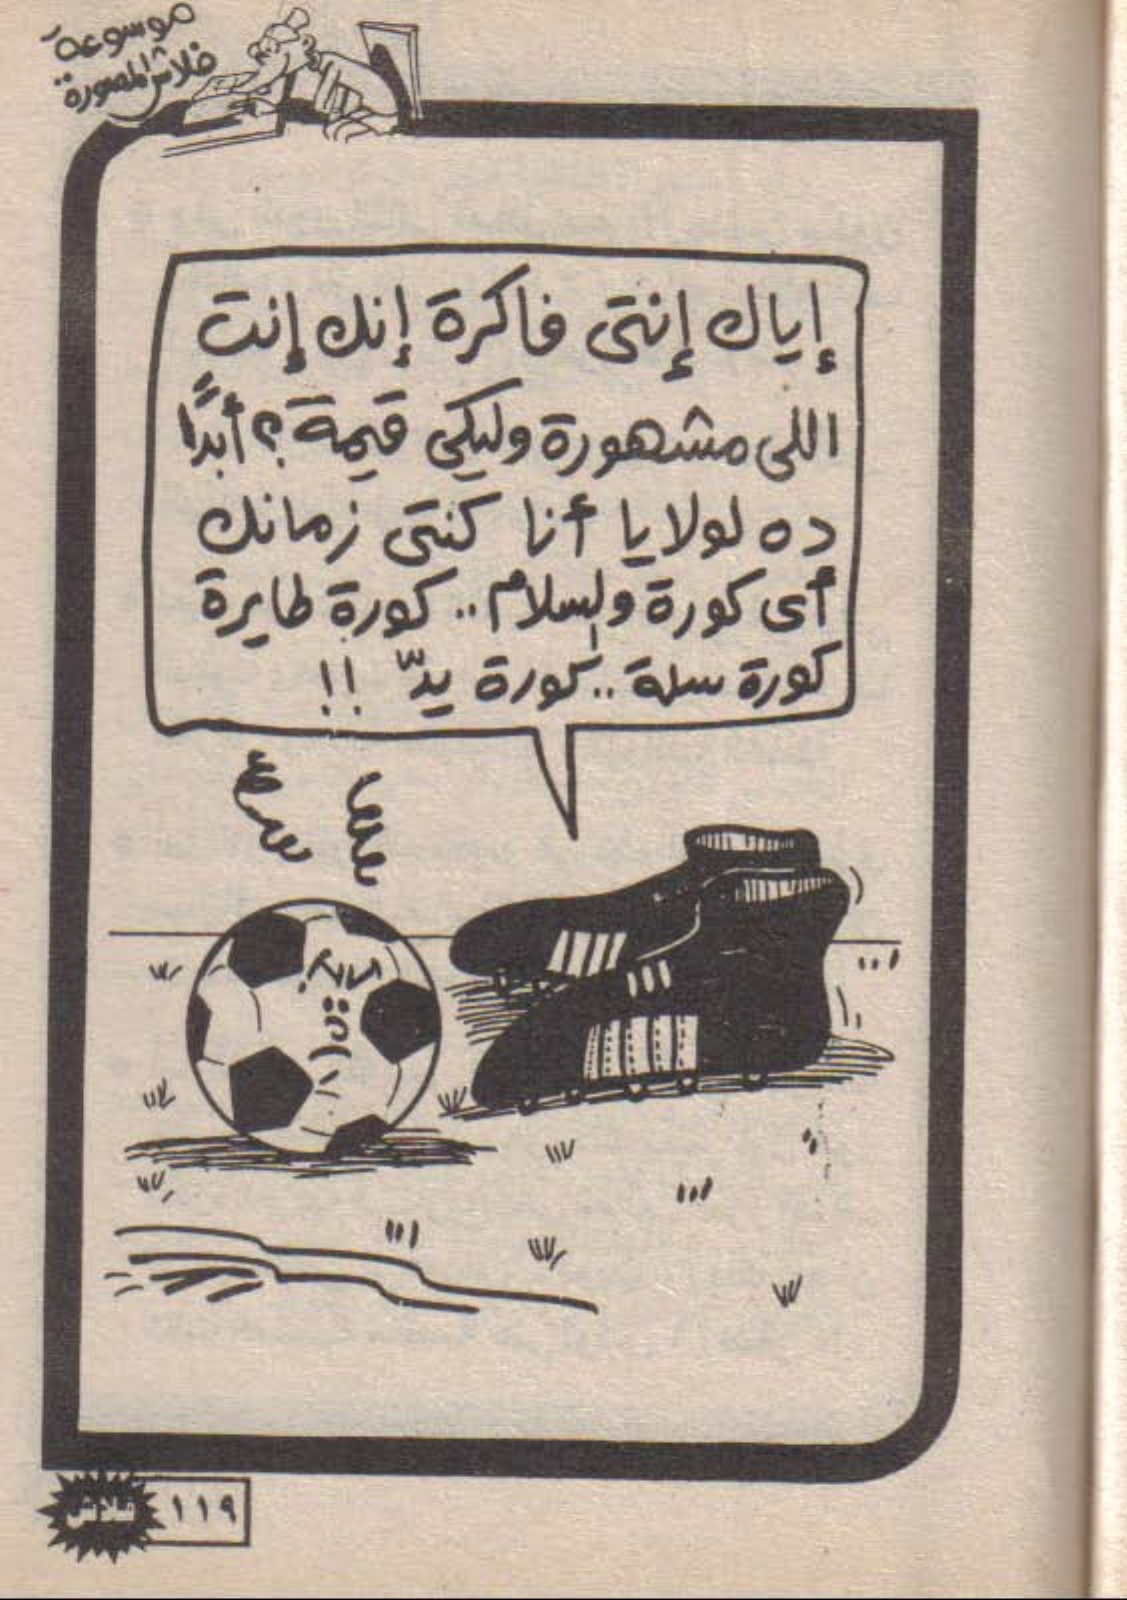 موسوعة
فلاش المصورة
إياك إنتى فاكرة إنك إنت
اللى مشهورة وليكى قيمة؟ أبدًا
ده لولايا أنا كنتى زمانك
أى كورة والسلام.. كورة طايرة
كورة سلة.. كورة يدّ !!
فلاش
١١٩